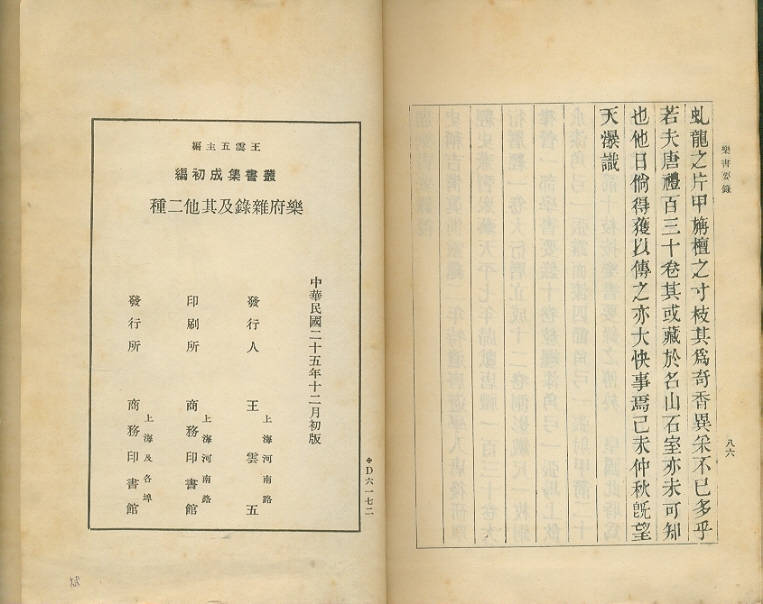 樂書要錄
八六
虬龍之片甲旃檀之寸枝其爲奇香異采不已多乎
若夫唐禮百三十卷其或藏於名山石室亦未可知
也他日倘得獲以傳之亦大快事焉己未仲秋旣望
天瀑識
王雲五主編
叢書集成初編
樂府雜錄及其他二種
中華民國二十五年十二月初版
發行人 王雲五
上海河南路
印刷所 商務印書館
上海河南路
發行所 商務印書館
上海及各埠
D六一七二